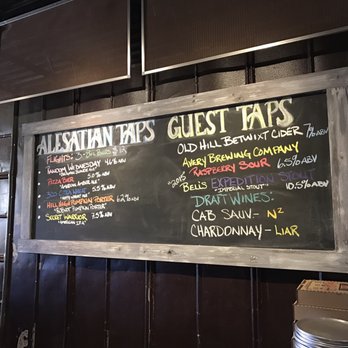 ALESATIAN TAPS
FLIGHTS: 3-
TANDEM WEDNESDAY 4.6%
PIZZA BEER 5.0%
5.5% ABV
HILL HIGH PUMPKIN PORTER 6.2%
SECRET WARRIOR 7.5% ABV
GUEST TAPS
OLD HILL BETWIXT CIDER 7% ABV
AVERY BREWING COMPANY
RASPBERRY SOUR 6.5% ABV
2015 BELL'S EXPEDITION STOUT
"IMPERIAL STOUT" 10.5% ABV
DRAFT WINES:
CAB SAUV- N²
CHARDONNAY- LIAR